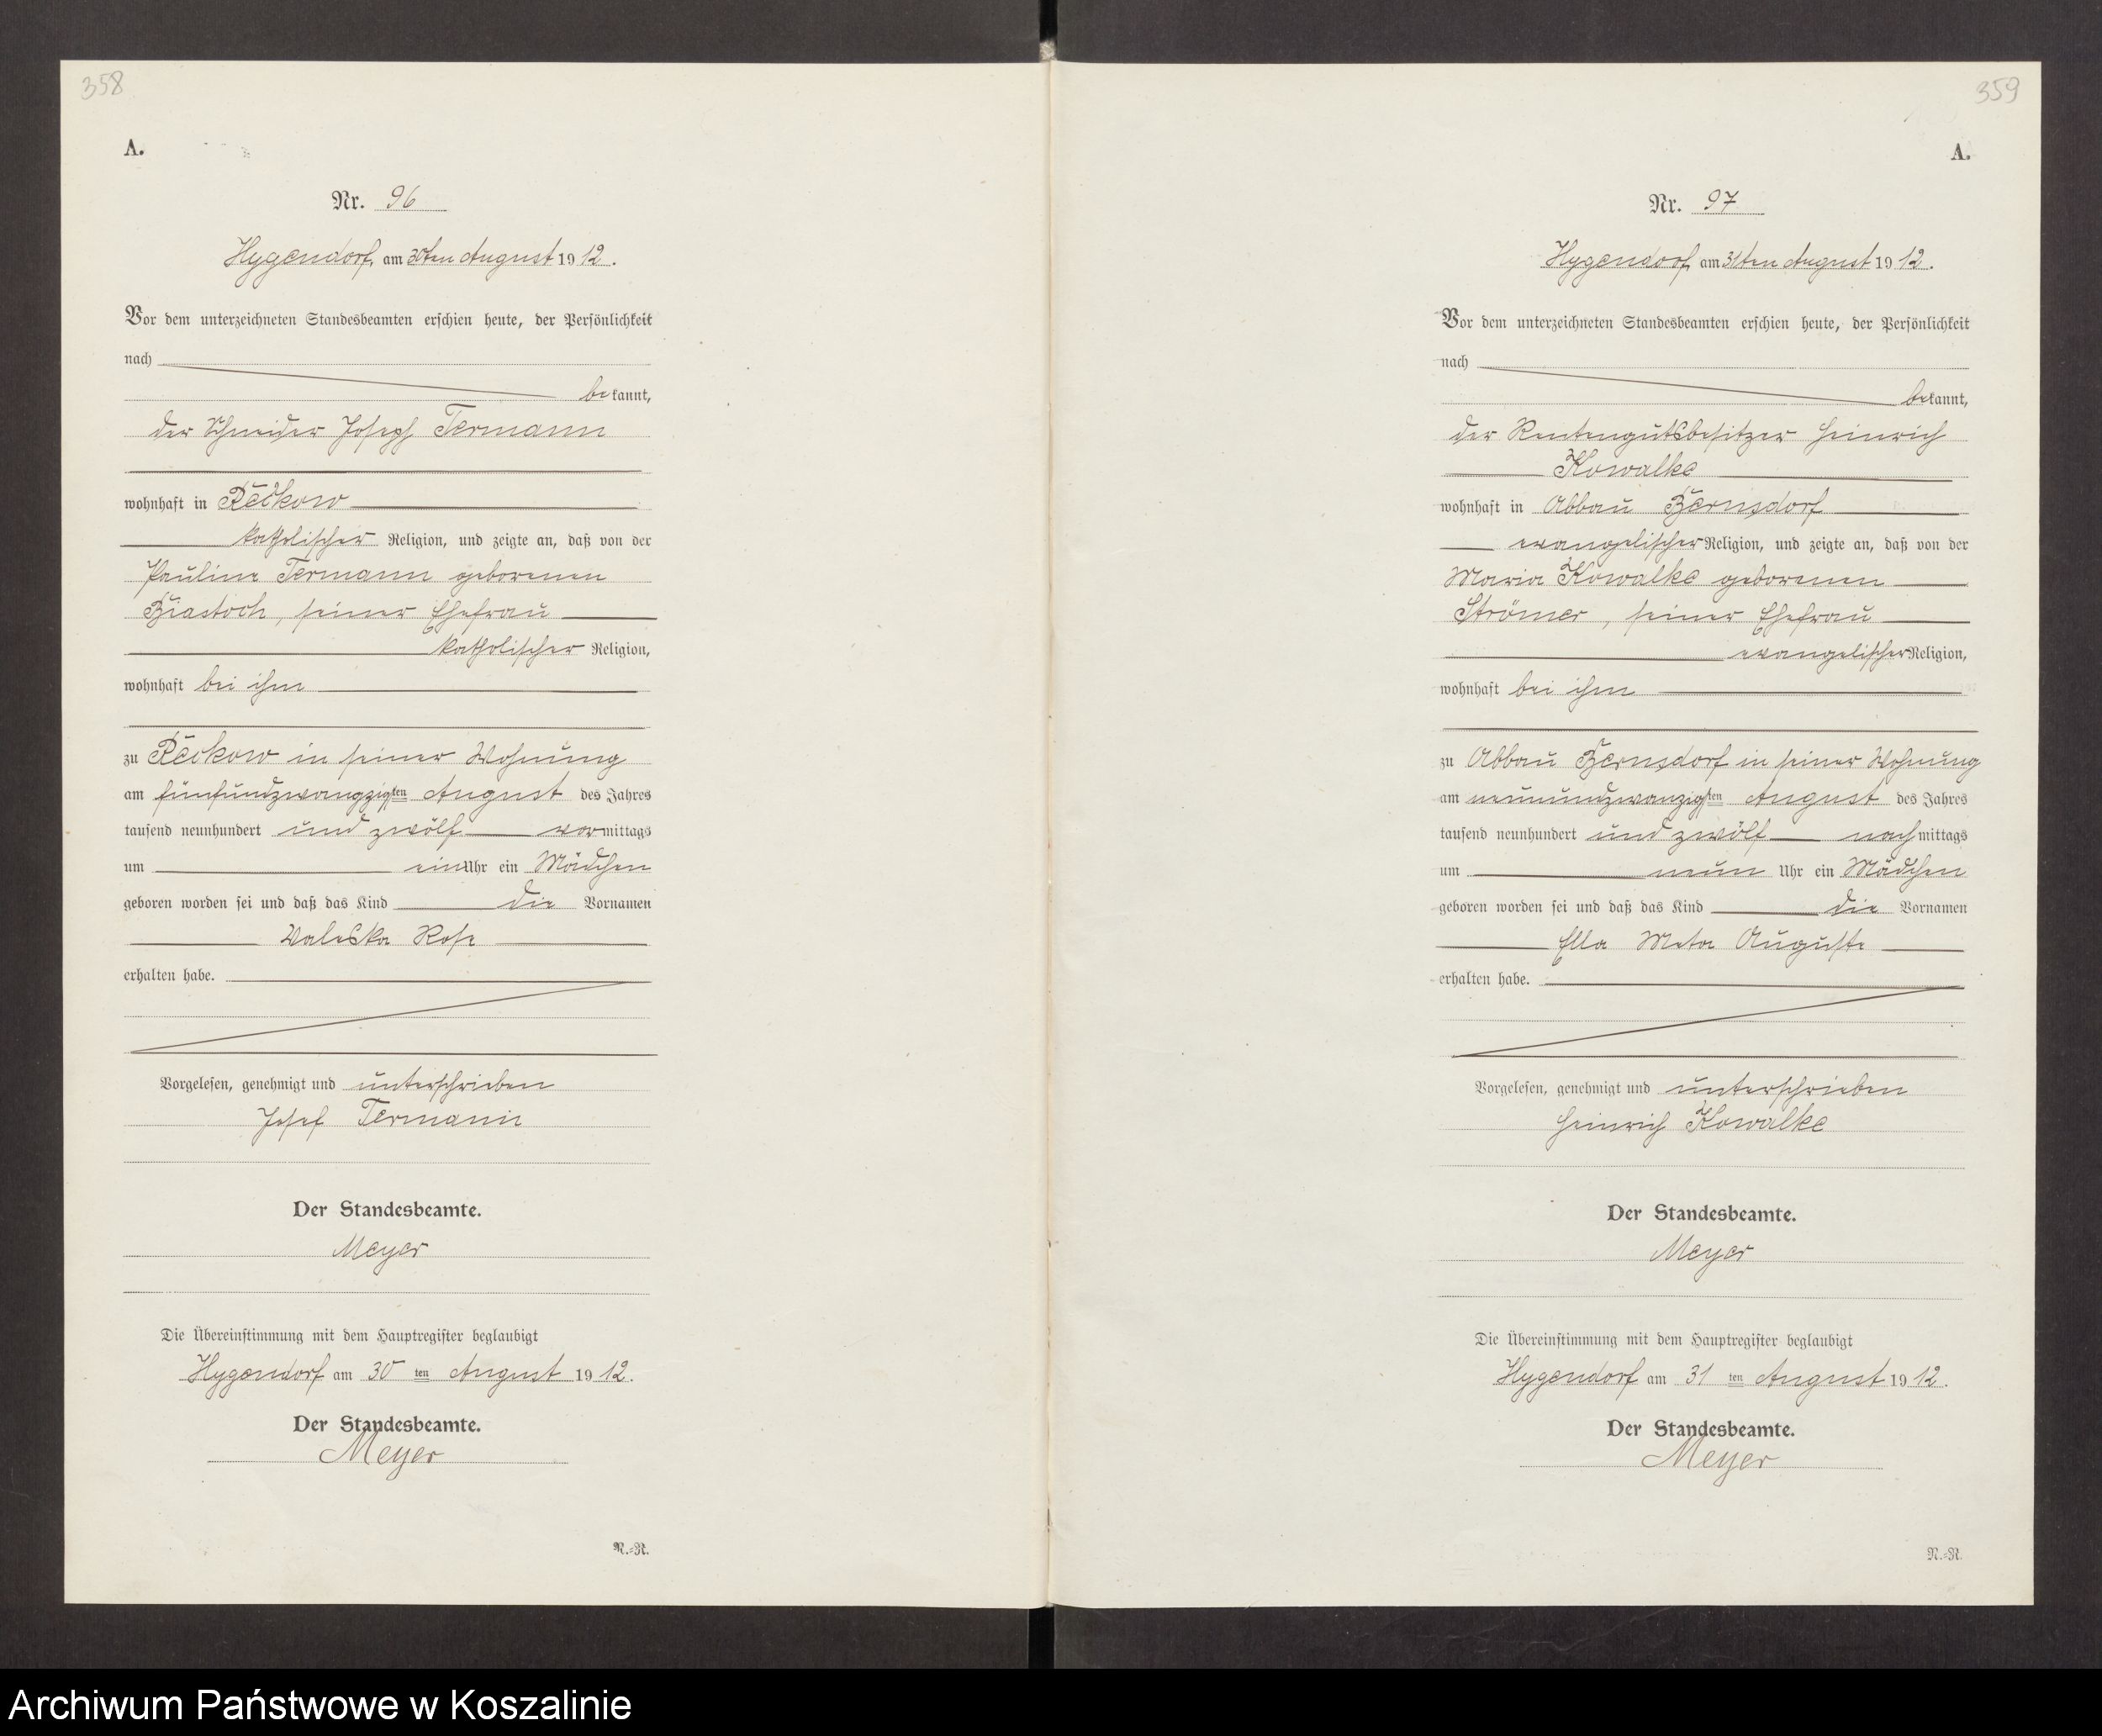 358
A.
Nr. 96
Hygendorf, am 30ten August 1912.
Vor dem unterzeichneten Standesbeamten erschien heute, der Persönlichkeit
nach
bekannt,
der Schneider Joseph Termann
wohnhaft in Reckow
katholischer Religion, und zeigte an, daß von der
Pauline Termann geborenen
Biastoch, seiner Ehefrau
katholischer Religion,
wohnhaft bei ihm
zu Reckow in seiner Wohnung
am fünfundzwangzigten August des Jahres
tausend neunhundert und zwölf vormittags
um ein Uhr ein Mädchen
geboren worden sei und daß das Kind die Vornamen
Valeska Rose
erhalten habe.
Vorgelesen, genehmigt und unterschrieben
Josef Termann
Der Standesbeamte.
Meyer
Die Übereinstimmung mit dem Hauptregister beglaubigt
Hygendorf am 30 ten August 1912.
Der Standesbeamte.
Meyer
N.=R.
359
A.
Nr. 97
Hygendorf, am 31ten August 1912.
Vor dem unterzeichneten Standesbeamten erschien heute, der Persönlichkeit
nach
bekannt,
der Rentengutsbesitzer Heinrich
Kowalke
wohnhaft in Abbau Bernsdorf
evangelischer Religion, und zeigte an, daß von der
Maria Kowalke geborenen
Strömer, seiner Ehefrau
evangelischer Religion,
wohnhaft bei ihm
zu Abbau Bernsdorf in seiner Wohnung
am neunundzwanzigten August des Jahres
tausend neunhundert und zwölf nachmittags
um neun Uhr ein Mädchen
geboren worden sei und daß das Kind die Vornamen
Ella Meta Auguste
erhalten habe.
Vorgelesen, genehmigt und unterschrieben
Heinrich Kowalke
Der Standesbeamte.
Meyer
Die Übereinstimmung mit dem Hauptregister beglaubigt
Hygendorf am 31 ten August 1912.
Der Standesbeamte.
Meyer
N.=R.
Archiwum Państwowe w Koszalinie